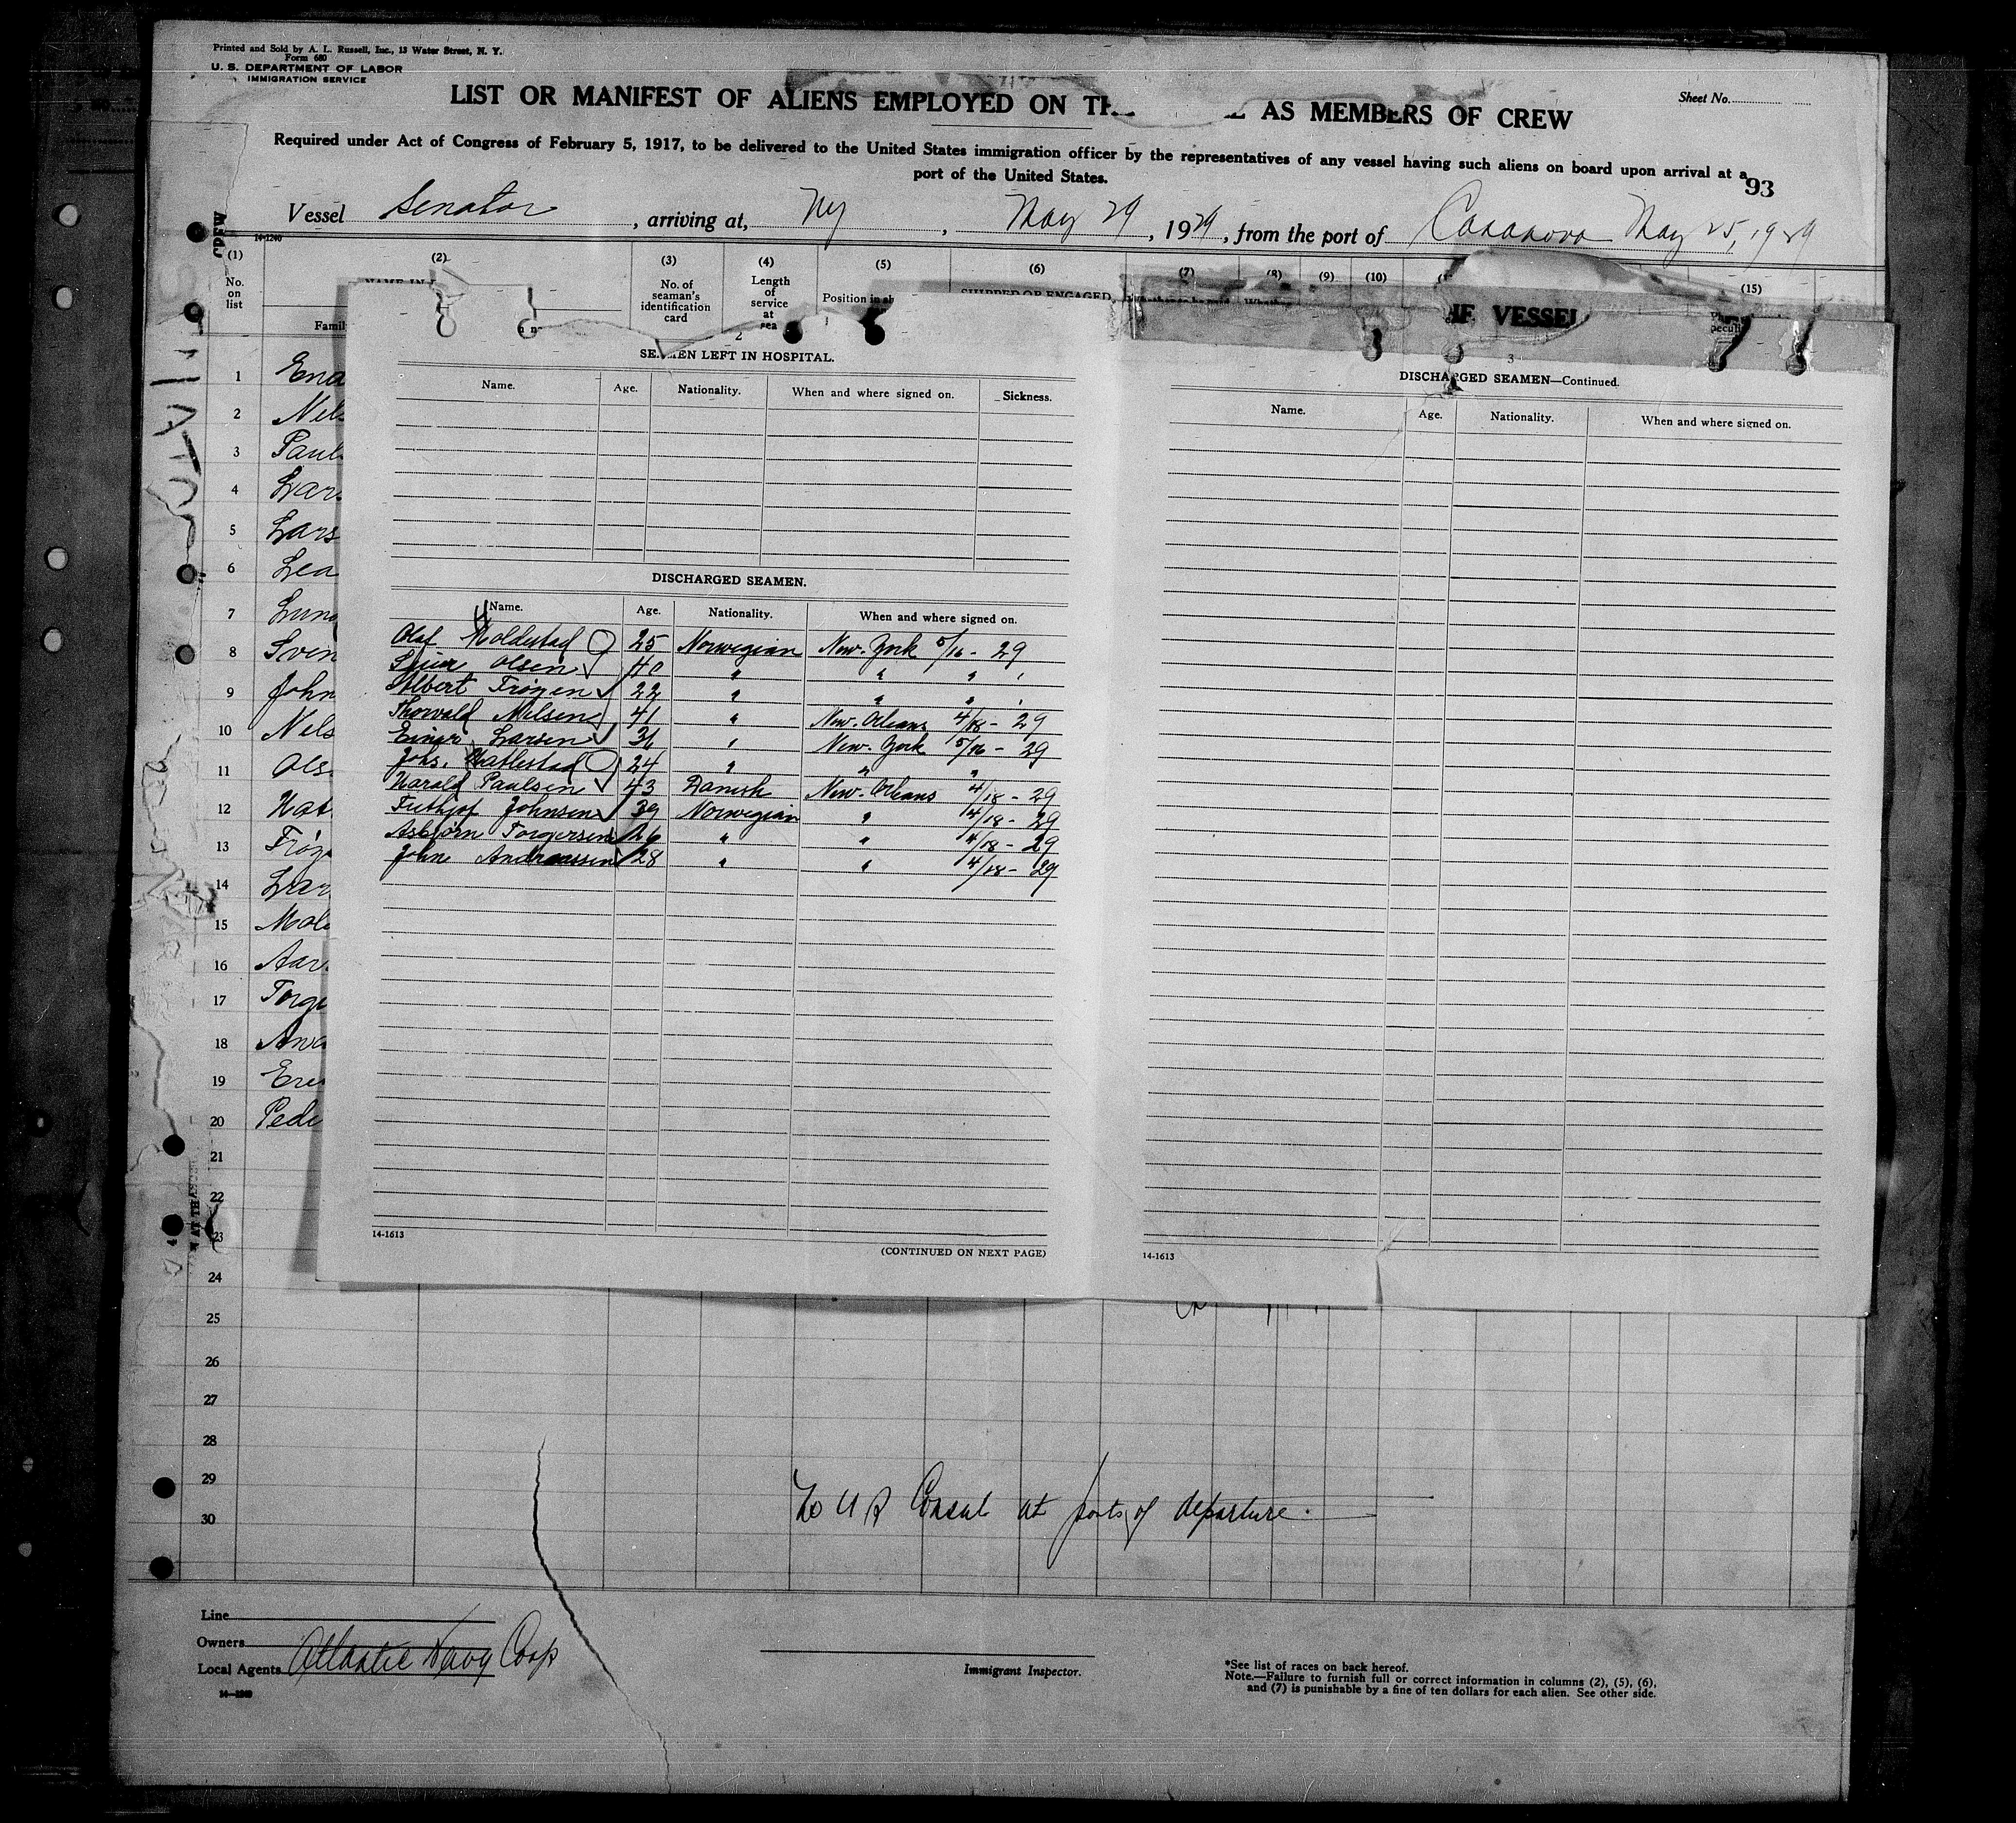 Printed and Sold by A. L. Russell, Inc., 13 Water Street, N. Y.
Form 680
U. S. DEPARTMENT OF LABOR
IMMIGRATION SERVICE
Sheet No.
LIST OR MANIFEST OF ALIENS EMPLOYED ON AS MEMBERS OF CREW
Required under Act of Congress of February 5, 1917, to be delivered to the United States immigration officer by the representatives of any vessel having such aliens on board upon arrival at a
port of the United States.
93
Vessel Senator, arriving at, Ny, May 29, 1929, from the port of May 25, 1929
CREW
14-1240
(1) (2) (3) (4) (5) (6) (7) (8) (9) (10) (15)
No. on list
No. of seaman's identification card
Length of service at sea
Position in
SHIPPED OR ENGAGED
Whether
VESSEL
1 End
2 Nels
3 Paul
4 Lars
5 Lars
6 Lea
7 Lund
8 Sven
9 John
10 Nels
11 Ols
12 Hat
13 Trög
14 Lar
15 Mol
16 Aar
17 Torge
18 And
19 Eri
20 Pede
21
22
23
24
25
26
27
28
29
30
2
SEAMEN LEFT IN HOSPITAL.
Name. Age. Nationality. When and where signed on. Sickness.
DISCHARGED SEAMEN.
Name. Age. Nationality. When and where signed on.
Olaf Moldestad 25 Norwegian New-York 5/16 - 29
Olsen 40 " " "
Albert Trøgen 22 " " "
Thorvald Nilsen 41 " New-Orleans 4/18 - 29
Einar Larsen 36 " New-York 5/16 - 29
Johs. Hatlestad 24 " " "
Harald Paulsen 43 Danish New-Orleans 4/18 - 29
Frithjof Johnsen 39 Norwegian " 4/18 - 29
Asbjörn Torgersen 26 " " 4/18 - 29
John Andreassen 28 " " 4/18 - 29
14-1613
(CONTINUED ON NEXT PAGE)
3
DISCHARGED SEAMEN—Continued.
Name. Age. Nationality. When and where signed on.
14-1613
No U S Consul at ports of departure.
Line
Owners
Local Agents Atlantic Navg Corp
14-1240
Immigrant Inspector.
*See list of races on back hereof.
Note.—Failure to furnish full or correct information in columns (2), (5), (6),
and (7) is punishable by a fine of ten dollars for each alien. See other side.